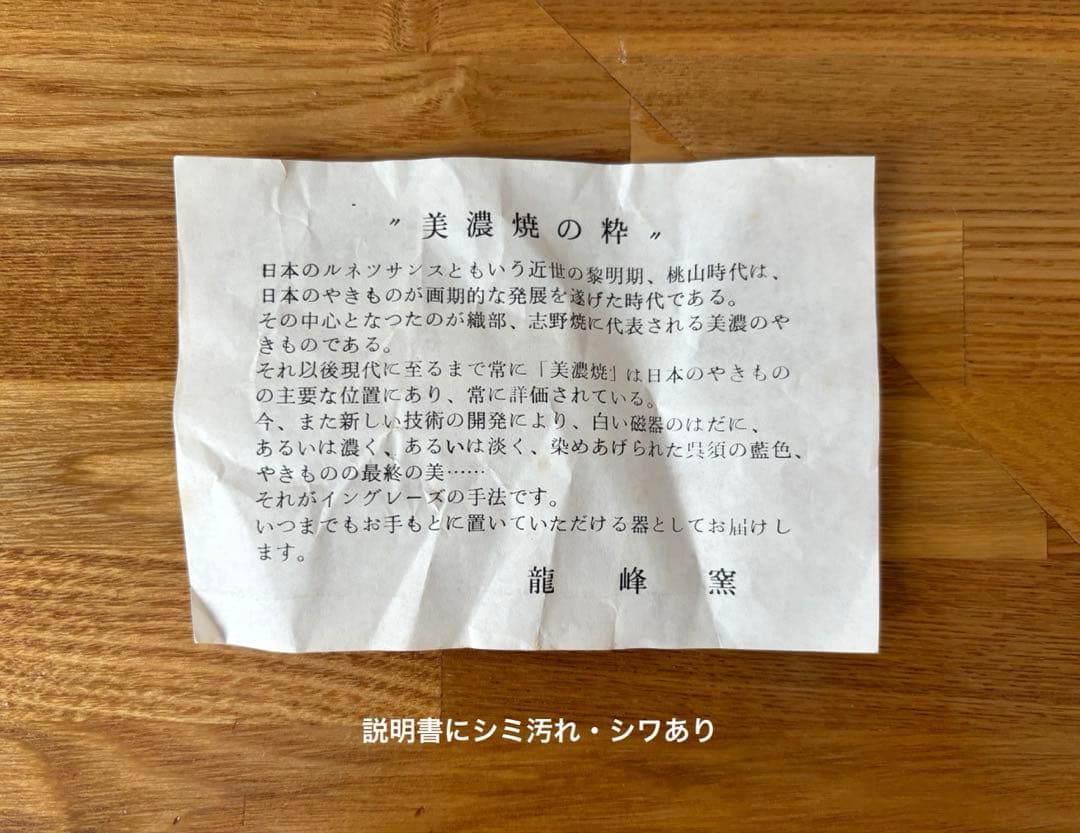 〃美濃焼の粋〃
日本のルネツサンスともいう近世の黎明期、桃山時代は、
日本のやきものが画期的な発展を遂げた時代である。
その中心となつたのが織部、志野焼に代表される美濃のや
きものである。
それ以後現代に至るまで常に「美濃焼」は日本のやきもの
の主要な位置にあり、常に評価されている。
今、また新しい技術の開発により、白い磁器のはだに、
あるいは濃く、あるいは淡く、染めあげられた呉須の藍色、
やきものの最終の美……
それがイングレーズの手法です。
いつまでもお手もとに置いていただける器としてお届けし
ます。
龍峰窯
説明書にシミ汚れ・シワあり